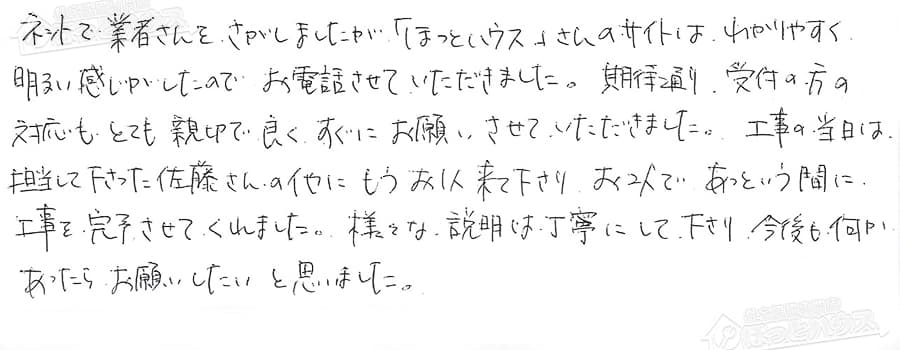 ネットで業者さんをさがしましたが「ほっとハウス」さんのサイトは、わかりやすく
明るい感じがしたのでお電話させていただきました。期待通り、受付の方の
対応もとても親切で良く、すぐにお願いさせていただきました。工事の当日は、
担当して下さった佐藤さんの他にもうお1人来て下さり、お2人であっという間に
工事を完了させてくれました。様々な説明は丁寧にして下さり、今後も何か
あったらお願いしたいと思いました。
ほっとハウス